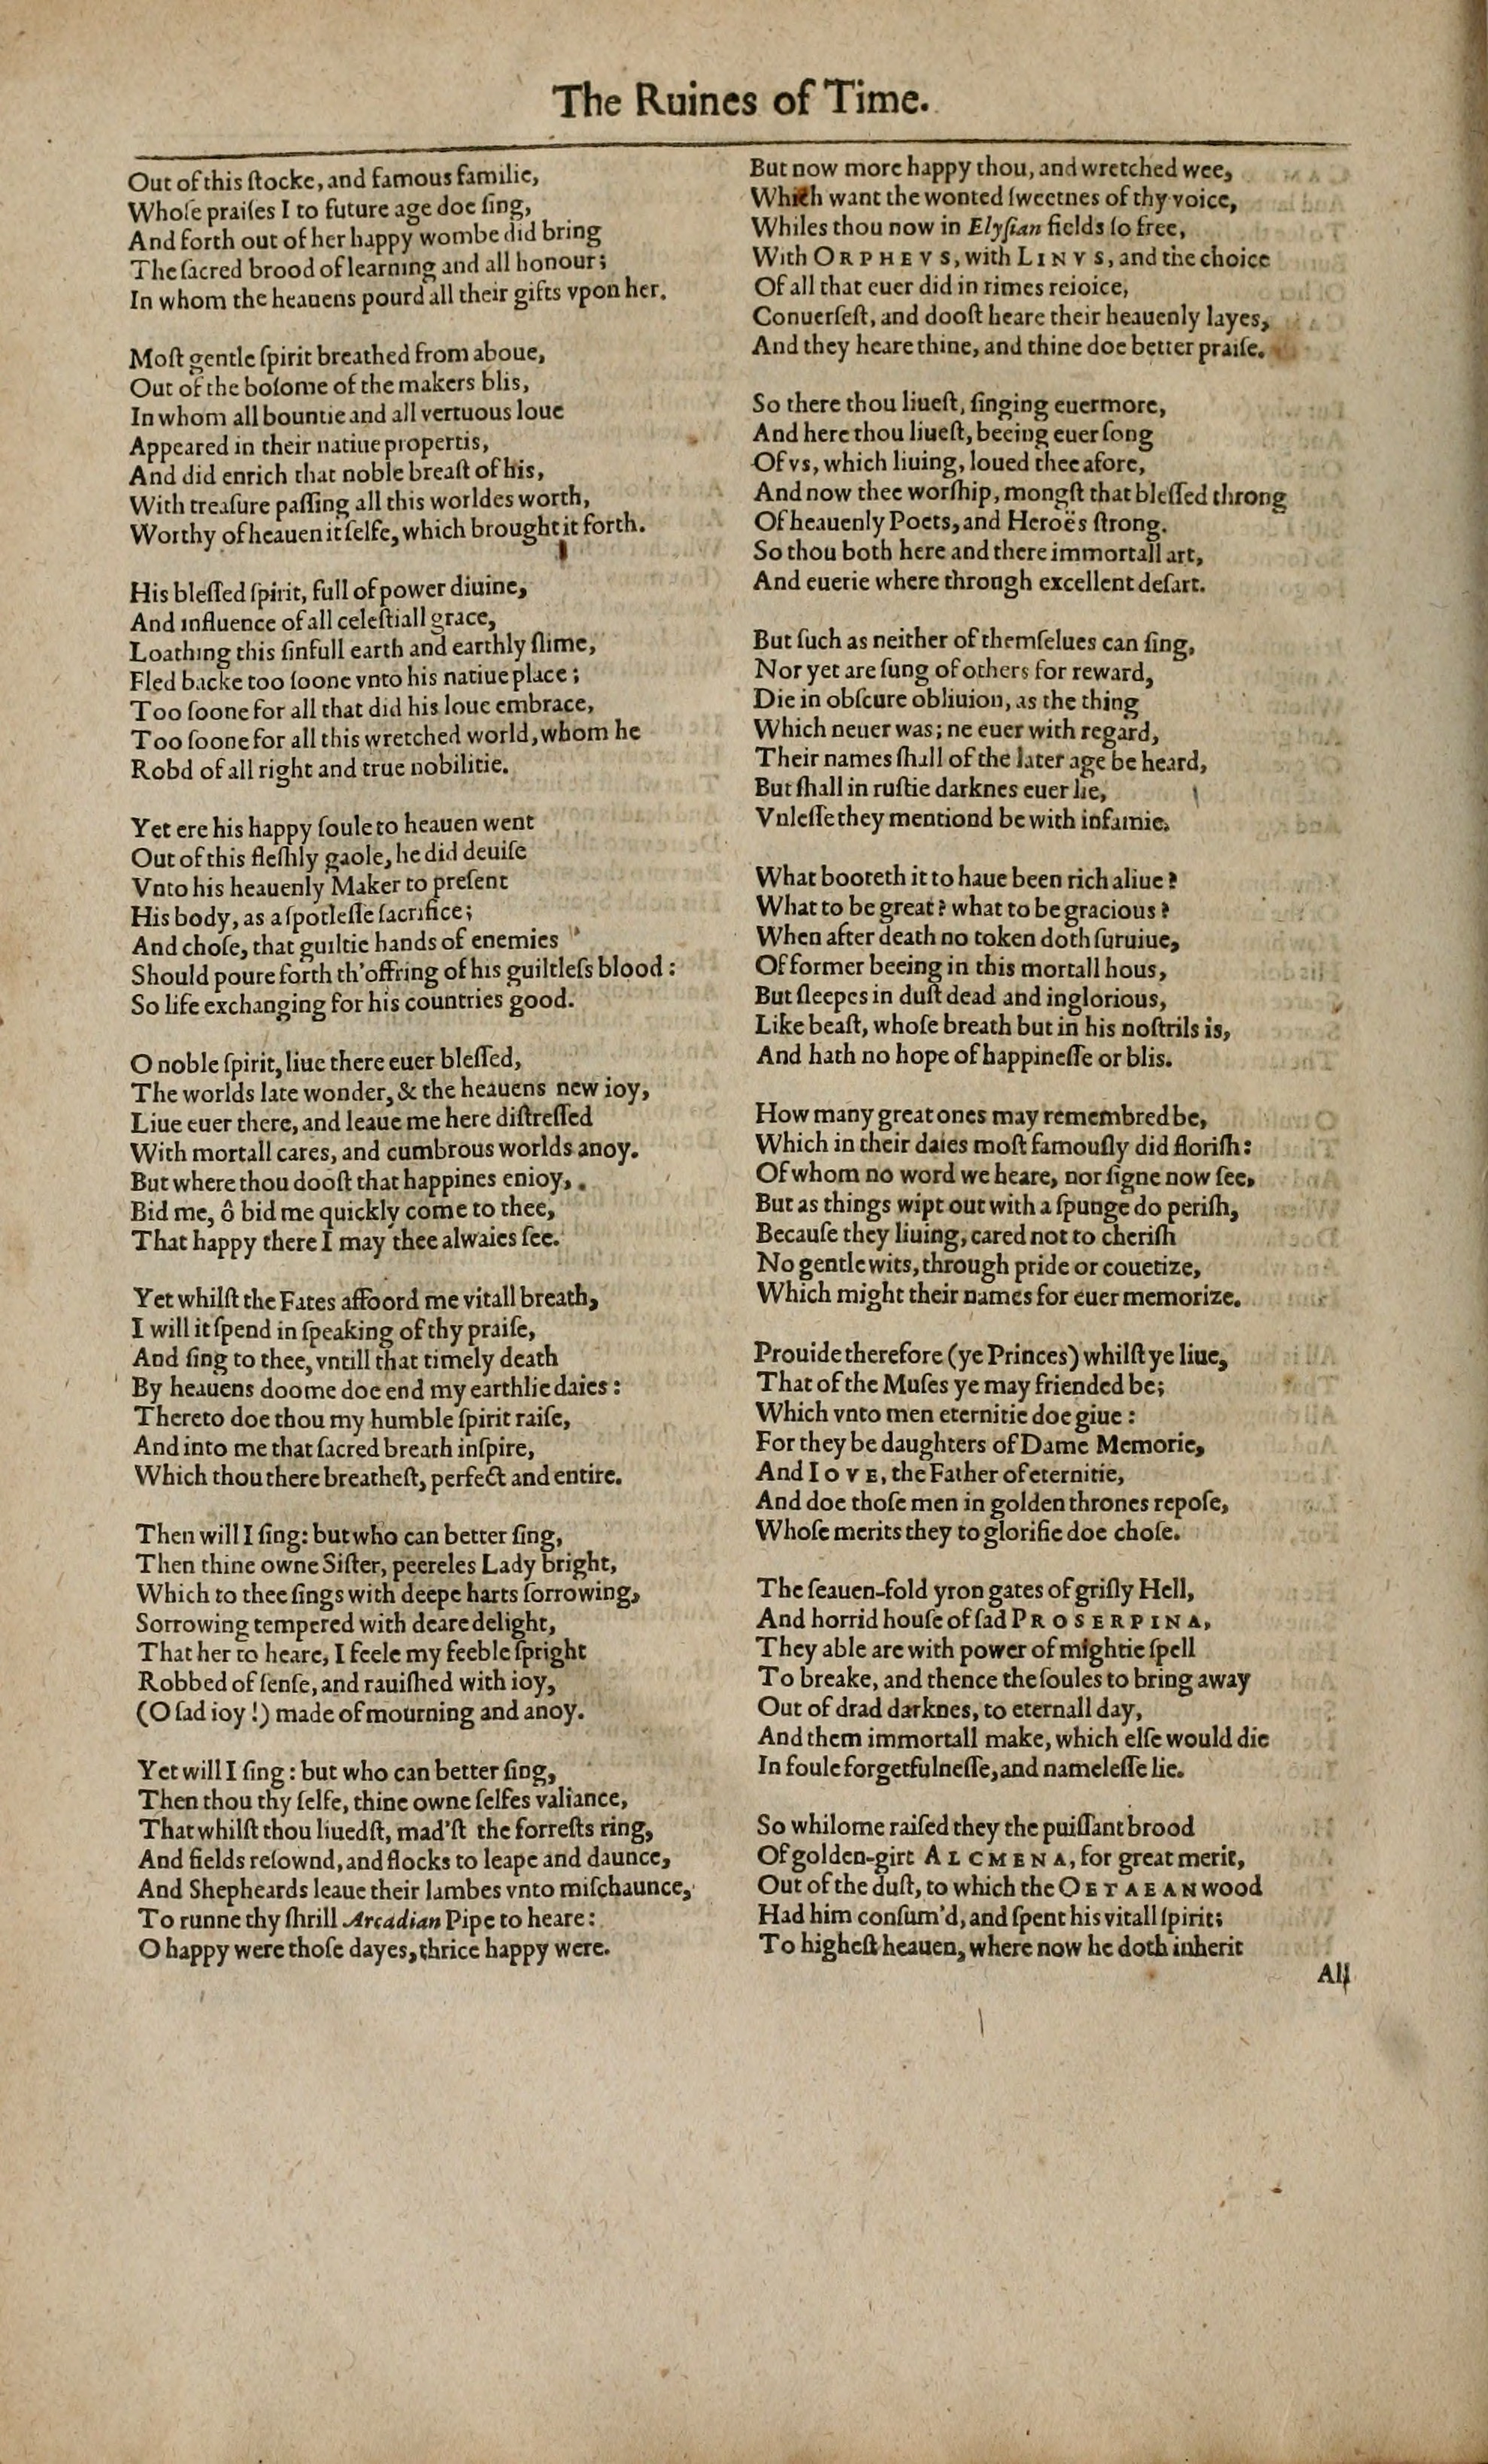 The Ruines of Time.
Out of this ſtocke, and famous familie,
Whoſe praiſes I to future age doe ſing,
And forth out of her happy wombe did bring
The ſacred brood of learning and all honour;
In whom the heauens pourd all their gifts vpon her.
Moſt gentle ſpirit breathed from aboue,
Out of the boſome of the makers blis,
In whom all bountie and all vertuous loue
Appeared in their natiue propertis,
And did enrich that noble breaſt of his,
With treaſure paſſing all this worldes worth,
Worthy of heauen it ſelfe, which brought it forth.
His bleſſed ſpirit, full of power diuine,
And influence of all celeſtiall grace,
Loathing this ſinfull earth and earthly ſlime,
Fled backe too ſoone vnto his natiue place;
Too ſoone for all that did his loue embrace,
Too ſoone for all this wretched world, whom he
Robd of all right and true nobilitie.
Yet ere his happy ſoule to heauen went
Out of this fleſhly gaole, he did deuiſe
Vnto his heauenly Maker to preſent
His body, as a ſpotleſſe ſacrifice;
And choſe, that guiltie hands of enemies
Should poure forth th'offring of his guiltleſs blood:
So life exchanging for his countries good.
O noble ſpirit, liue there euer bleſſed,
The worlds late wonder, & the heauens new ioy,
Liue euer there, and leaue me here diſtreſſed
With mortall cares, and cumbrous worlds anoy.
But where thou dooſt that happines enioy,
Bid me, ô bid me quickly come to thee,
That happy there I may thee alwaies ſee.
Yet whilſt the Fates affoord me vitall breath,
I will it ſpend in ſpeaking of thy praiſe,
And ſing to thee, vntill that timely death
By heauens doome doe end my earthlie daies:
Thereto doe thou my humble ſpirit raiſe,
And into me that ſacred breath inſpire,
Which thou there breatheſt, perfect and entire.
Then will I ſing: but who can better ſing,
Then thine owne Siſter, peereles Lady bright,
Which to thee ſings with deepe harts ſorrowing,
Sorrowing tempered with deare delight,
That her to heare, I feele my feeble ſpright
Robbed of ſenſe, and rauiſhed with ioy,
(O ſad ioy!) made of mourning and anoy.
Yet will I ſing: but who can better ſing,
Then thou thy ſelfe, thine owne ſelfes valiance,
That whilſt thou liuedſt, mad'ſt the forreſts ring,
And fields reſownd, and flocks to leape and daunce,
And Shepheards leaue their lambes vnto miſchaunce,
To runne thy ſhrill Arcadian Pipe to heare:
O happy were thoſe dayes, thrice happy were.
But now more happy thou, and wretched wee,
Which want the wonted ſweetnes of thy voice,
Whiles thou now in Elyſian fields ſo free,
With ORPHEVS, with LINVS, and the choice
Of all that euer did in rimes reioice,
Conuerſeſt, and dooſt heare their heauenly layes,
And they heare thine, and thine doe better praiſe.
So there thou liueſt, ſinging euermore,
And here thou liueſt, beeing euer ſong
Of vs, which liuing, loued thee afore,
And now thee worſhip, mongſt that bleſſed throng
Of heauenly Poets, and Heroës ſtrong.
So thou both here and there immortall art,
And euerie where throngh excellent deſart.
But ſuch as neither of themſelues can ſing,
Nor yet are ſung of others for reward,
Die in obſcure obliuion, as the thing
Which neuer was; ne euer with regard,
Their names ſhall of the later age be heard,
But ſhall in ruſtie darknes euer lie,
Vnleſſe they mentiond be with infamie.
What booteth it to haue been rich aliue?
What to be great? what to be gracious?
When after death no token doth ſuruiue,
Of former beeing in this mortall hous,
But ſleepes in duſt dead and inglorious,
Like beaſt, whoſe breath but in his noſtrils is,
And hath no hope of happineſſe or blis.
How many great ones may remembred be,
Which in their daies moſt famouſly did floriſh:
Of whom no word we heare, nor ſigne now ſee,
But as things wipt out with a ſpunge do periſh,
Becauſe they liuing, cared not to cheriſh
No gentle wits, through pride or couetize,
Which might their names for euer memorize.
Prouide therefore (ye Princes) whilſt ye liue,
That of the Muſes ye may friended be;
Which vnto men eternitie doe giue:
For they be daughters of Dame Memorie,
And IOVE, the Father of eternitie,
And doe thoſe men in golden thrones repoſe,
Whoſe merits they to glorifie doe choſe.
The ſeauen-fold yron gates of griſly Hell,
And horrid houſe of ſad PROSERPINA,
They able are with power of mightie ſpell
To breake, and thence the ſoules to bring away
Out of drad darknes, to eternall day,
And them immortall make, which elſe would die
In foule forgetfulneſſe, and nameleſſe lie.
So whilome raiſed they the puiſſant brood
Of golden-girt ALCMENA, for great merit,
Out of the duſt, to which the OETAEAN wood
Had him conſum'd, and ſpent his vitall ſpirit;
To higheſt heauen, where now he doth inherit
All